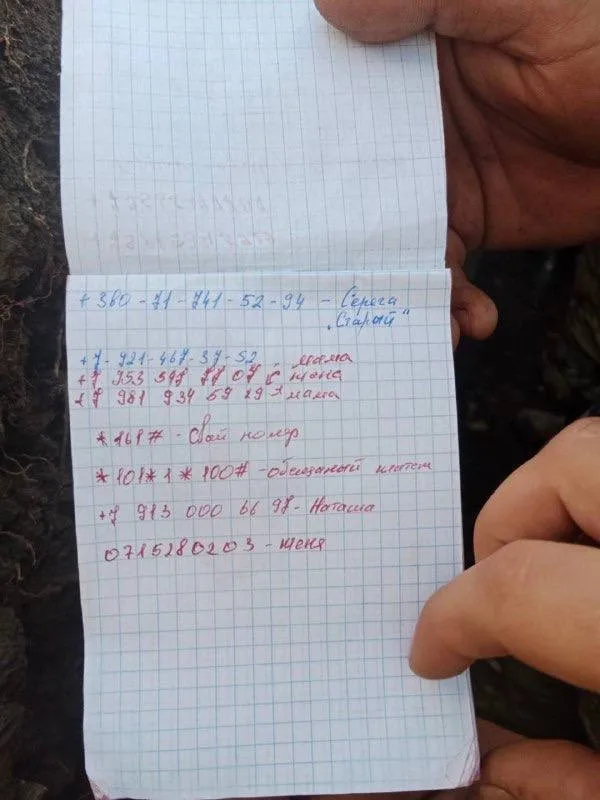 + 360 - 71 - 741 - 52 - 94 - Серега
"Старый"
+7 - 921 - 467 - 37 - 52 - мама
+7 953 348 77 07 жена
+7 981 934 59 29 мама
*161# - Свой номер
*101*1*100# - обещаный платеж
+7 913 000 66 97 - Наташа
0715280203 - Женя